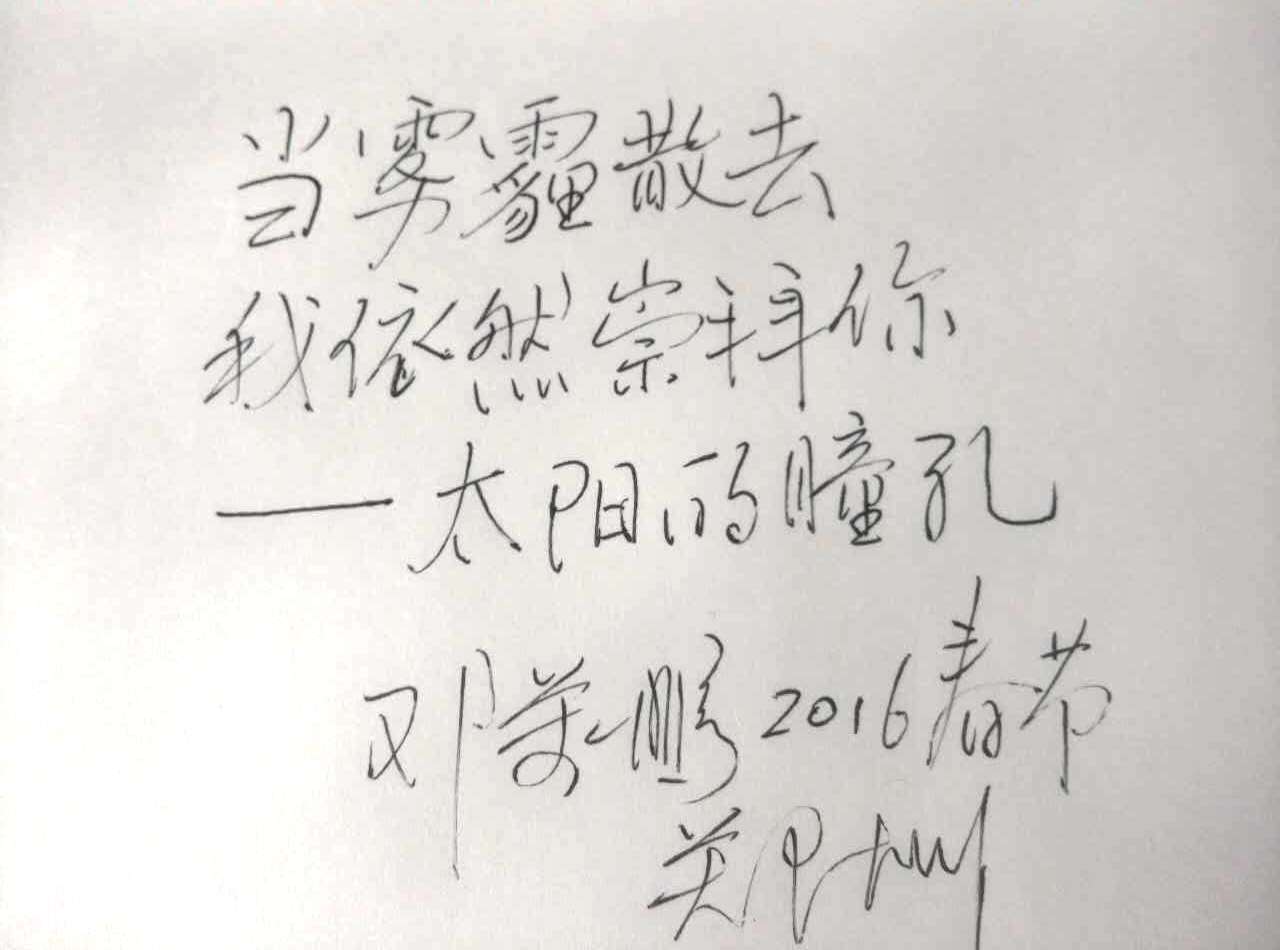 当雾霾散去
我依然崇拜你
——太阳的瞳孔
邓万鹏 2016春节
郑州